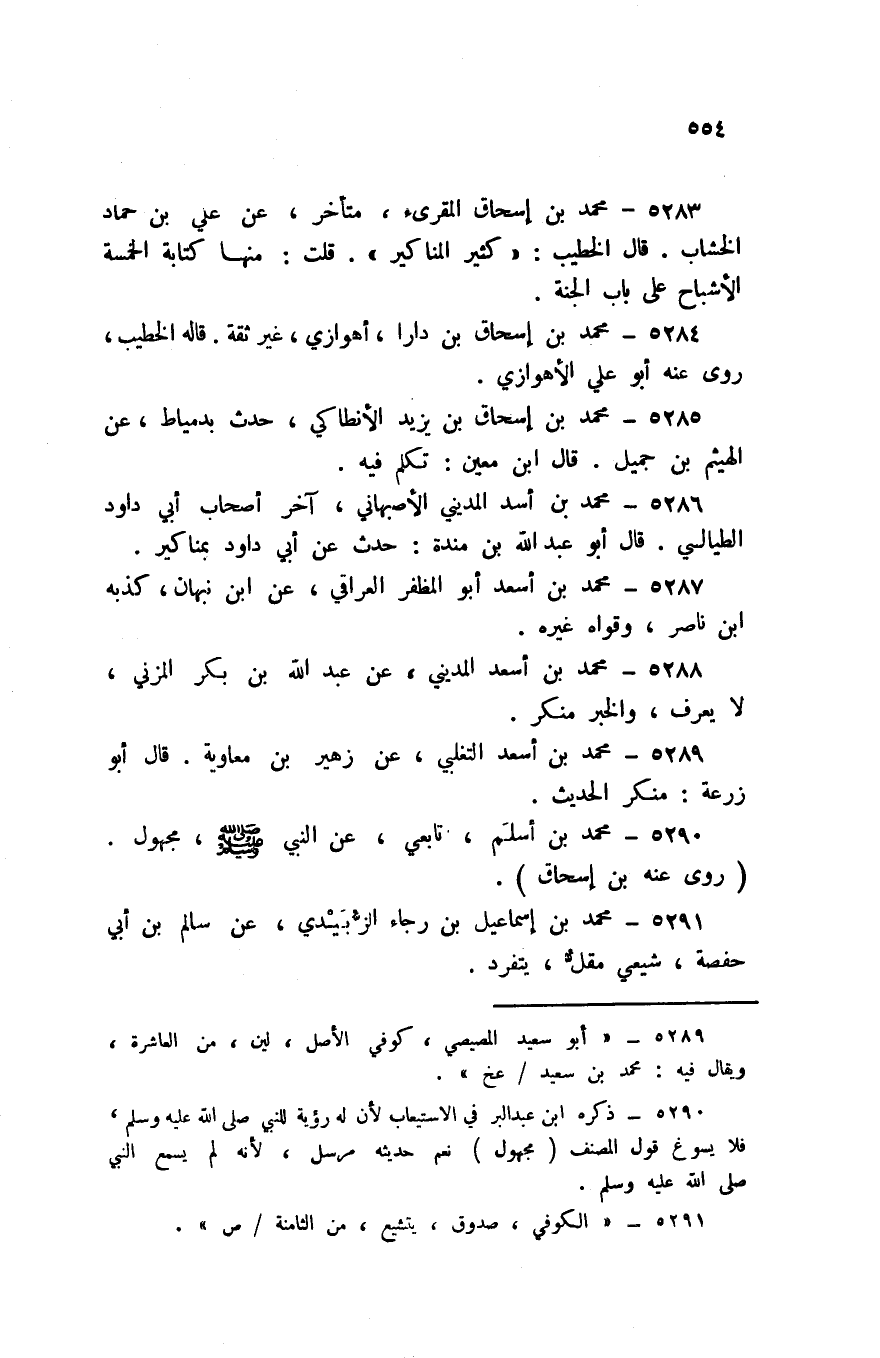 ٥٥٤
٥٢٨٣ – محمد بن إسحاق المقرىء ، متأخر ، عن علي بن حماد
الخشاب . قال الخطيب : « كثير المناكير » . قلت : منهـا كتابة الخمسة
الأشباح على باب الجنة .
٥٢٨٤ – محمد بن إسحاق بن دارا ، أهوازي ، غير ثقة . قاله الخطيب ،
روى عنه أبو علي الأهوازي .
٥٢٨٥ – محمد بن إسحاق بن يزيد الأنطاكي ، حدث بدمياط ، عن
الهيثم بن جميل . قال ابن معين : تكلم فيه .
٥٢٨٦ – محمد بن أسد المديني الأصبهاني ، آخر أصحاب أبي داود
الطيالسي . قال أبو عبد الله بن مندة : حدث عن أبي داود بمناكير .
٥٢٨٧ – محمد بن أسعد أبو المظفر العراقي ، عن ابن نبهان ، كذبه
ابن ناصر ، وقواه غيره .
٥٢٨٨ – محمد بن أسعد المديني ، عن عبد الله بن بكر المزني ،
لا يعرف ، والخبر منكر .
٥٢٨٩ – محمد بن أسعد التغلبي ، عن زهير بن معاوية . قال أبو
زرعة : منكر الحديث .
٥٢٩٠ – محمد بن أسلَم ، تابعي ، عن النبي ﷺ ، مجهول .
( روى عنه بن إسحاق ) .
٥٢٩١ – محمد بن إسماعيل بن رجاء الزُّبَيْدي ، عن سالم بن أبي
حفصة ، شيعي مقلٌّ ، يتفرد .
٥٢٨٩ – « أبو سعيد المصيصي ، كوفي الأصل ، لين ، من العاشرة ،
ويقال فيه : محمد بن سعيد / عخ » .
٥٢٩٠ – ذكره ابن عبدالبر في الاستيعاب لأن له رؤية للنبي صلى الله عليه وسلم ،
فلا يسوغ قول المصنف ( مجهول ) نعم حديثه مرسل ، لأنه لم يسمع النبي
صلى الله عليه وسلم .
٥٢٩١ – « الكوفي ، صدوق ، يتشيع ، من الثامنة / ص » .